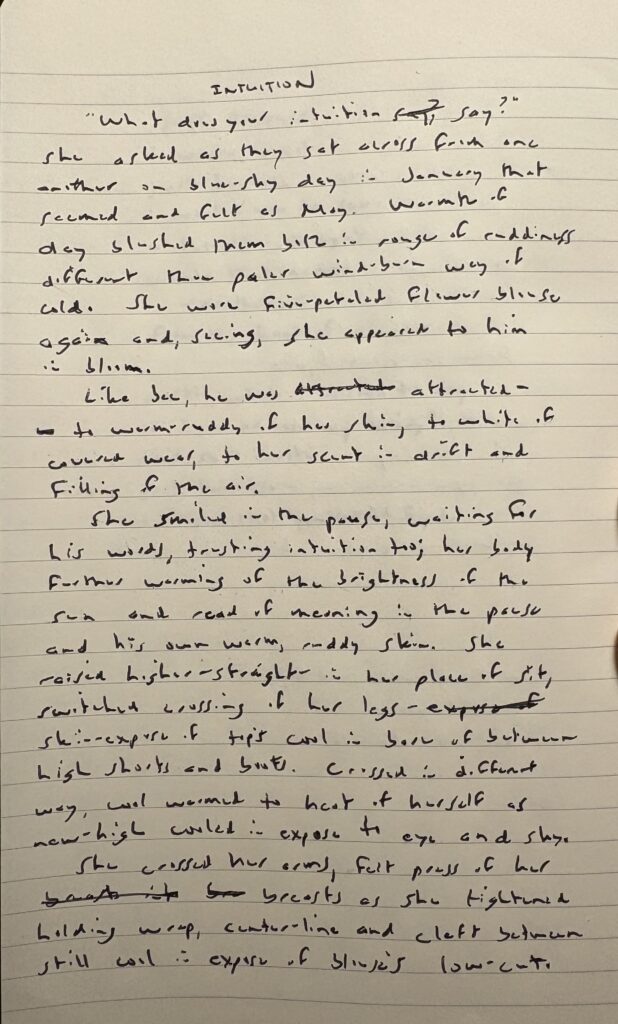 INTUITION
"What does your intuition say?"
She asked as they sat across from one
another on blue-sky day in January that
seemed and felt as May. Warmth of
day blushed them both in rouge of ruddiness
different than paler wind-burn way of
cold. She wore five-petaled flower blouse
again and, seeing, she appeared to him
in bloom.
Like bee, he was attracted attracted-
- to warm-ruddy of her skin, to white of
covered wear, to her scent in drift and
filling of the air.
She smiled in the pause, waiting for
his words, trusting intuition too; her body
further warming of the brightness of the
sun and read of meaning in the pause
and his own warm, ruddy skin. She
raised higher-straight in her place of sit,
switched crossing of her legs - expose of
skin--expose of top's cool in bare of between
high shorts and boots. Crossed in different
way, cool warmed to heat of herself as
new-high cooled in expose to eye and sky.
She crossed her arms, felt press of her
breasts as she tightened
holding wrap, center-line and cleft between
still cool in expose of blouse's low-cut.